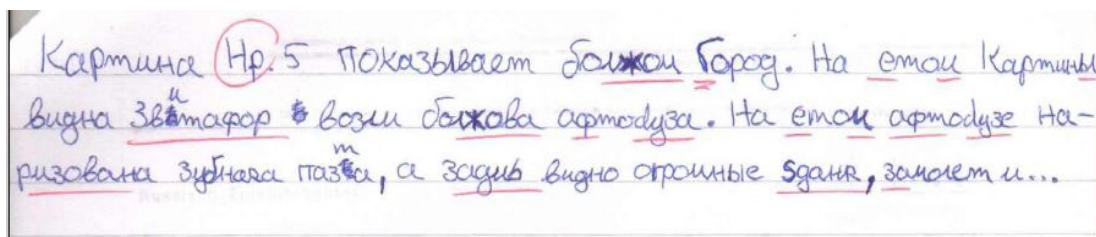 Картина Нр. 5 показывает болжои Город. На етои Картины
видна Звитафор возли болжова афтодуза. На етои афтодузе на-
ризована зубнака пазта, а задиь видно огромные sданя, замолет и...